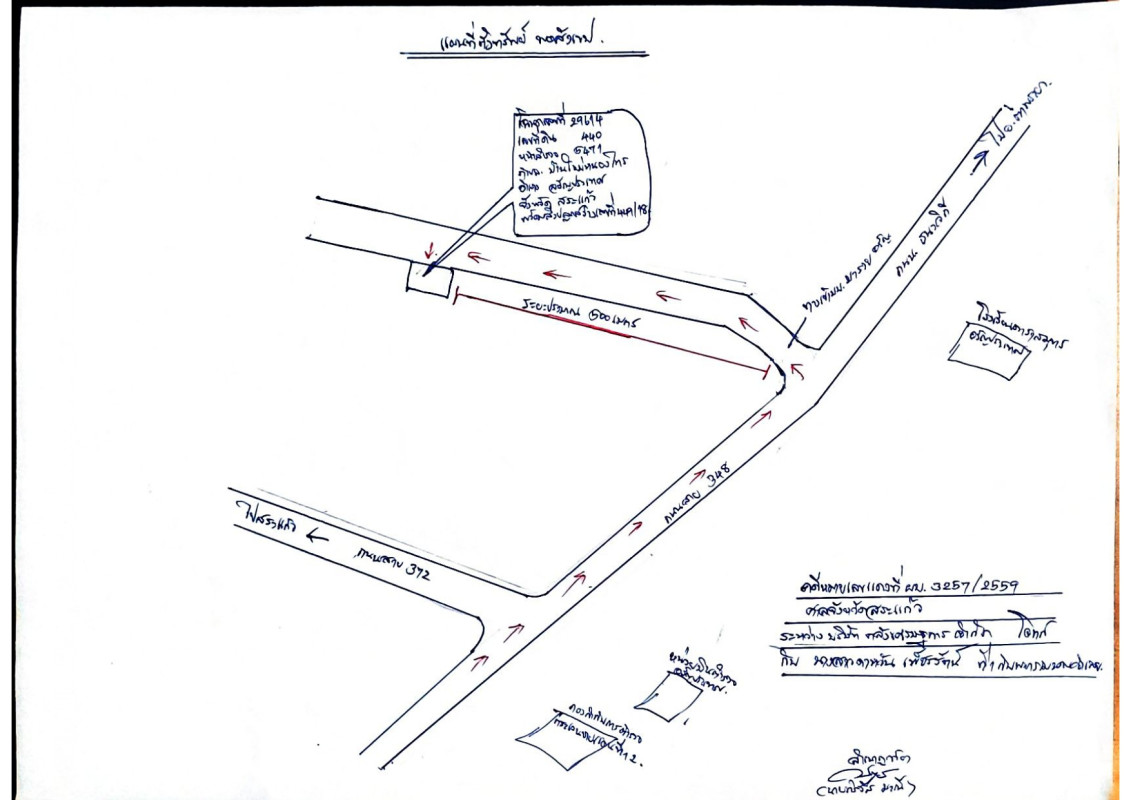 แผนที่ตั้งทรัพย์ พอสังเขป.
โฉนดเลขที่ 29614
เลขที่ดิน 440
หน้าสำรวจ 6471
ตำบล บ้านใหม่หนองไทร
อำเภอ อรัญประเทศ
จังหวัด สระแก้ว
พร้อมสิ่งปลูกสร้างเลขที่
ไป อ.ตาพระยา.
ถนน ธนะวิถี
ระยะประมาณ 500 เมตร
โรงเรียนดาราสมุทร
อรัญประเทศ
ถนนสาย 348
ไปสระแก้ว
ถนนสาย 372
คดีหมายเลขแดงที่ ผบ. 3257/2559
ศาลจังหวัดสระแก้ว
ระหว่าง บริษัท จำกัด โจทก์
กับ นางสาว เพ็ชรรัตน์
หน่วยบินตำรวจ
อรัญประเทศ.
กองกำกับการตำรวจ
ตระเวนชายแดนที่ 12.